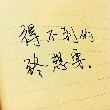 得不到的
於想要.